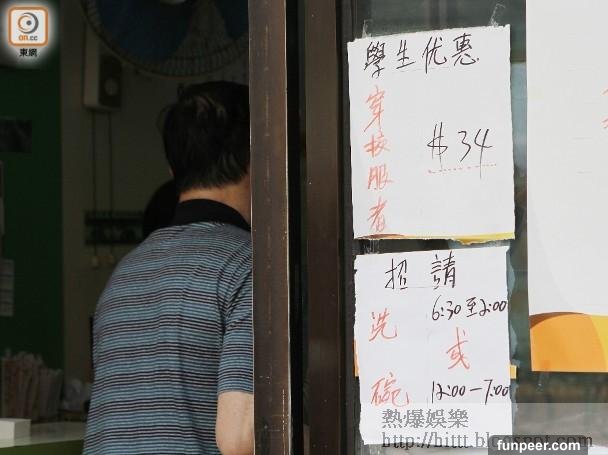 on.cc
東網
學生优惠
穿校服者
$34
招請
洗碗
6:30至2:00
或
12:00-7:00
熱爆娛樂
http://hittt.blogspot.com
funpeer.com